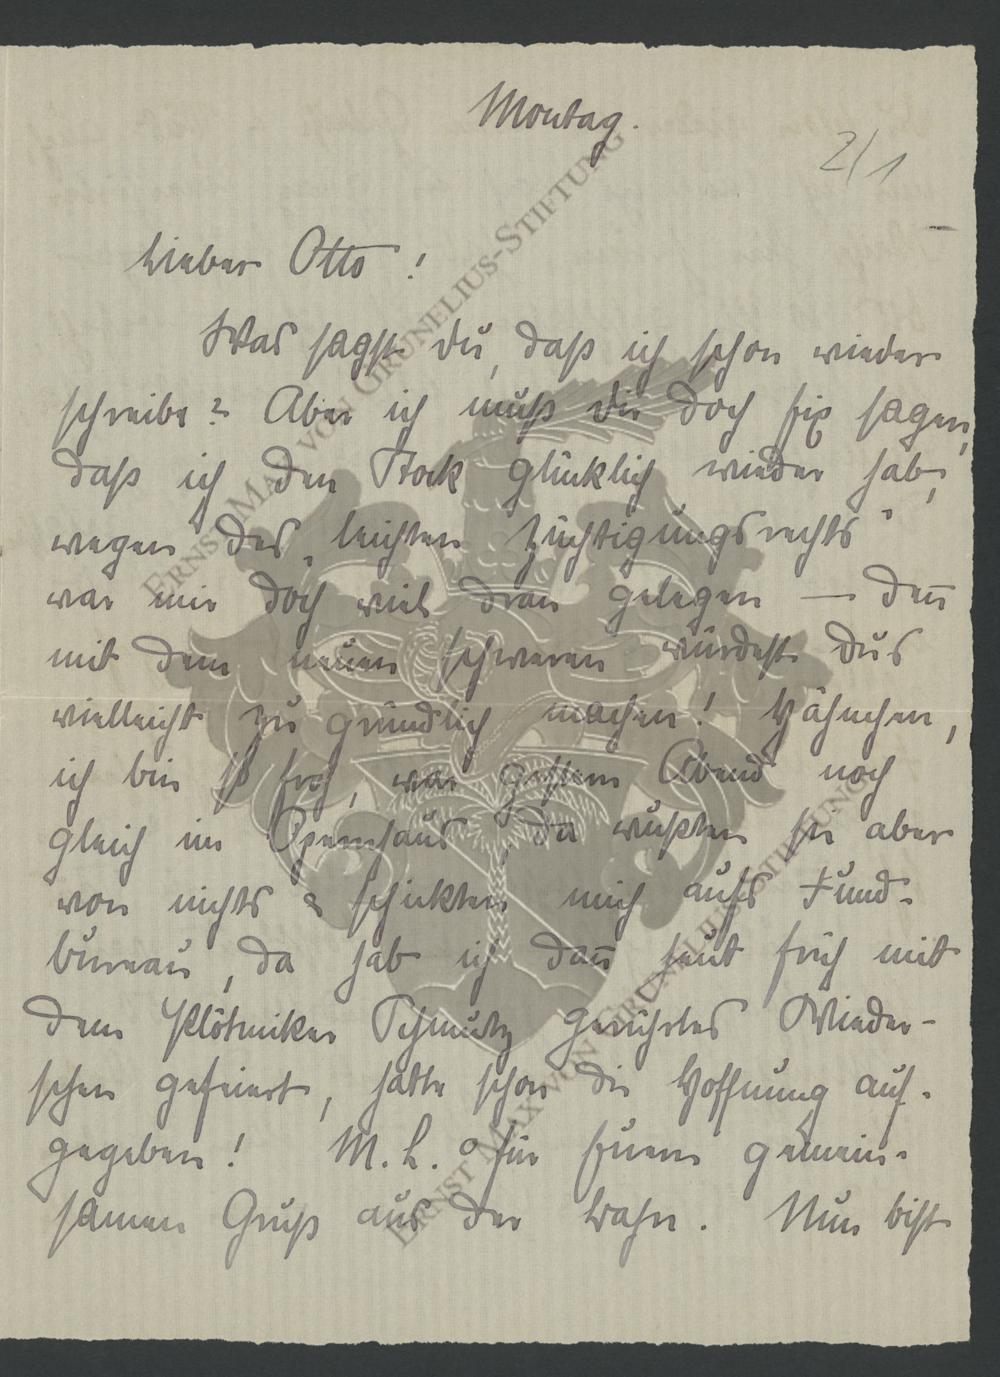 Montag.
2/1
Lieber Otto!
Was sagst du, daß ich schon wieder
schreibe? Aber ich muß dir doch fix sagen,
daß ich den Stock glücklich wieder hab,
wegen des „leichten Züchtigungsrechts"
war mir doch viel dran gelegen — den̅
mit dem neuen schweren würdest Dus
vielleicht zu gründlich machen! Hähnchen,
ich bin so froh, war gestern Abend noch
gleich im Opernhaus, da wußten sie aber
von nichts & schickten mich aufs Fund-
bureau, da hab ich dan̅ heut früh mit
dem Schmutz gerührtes Wieder-
sehen gefeiert, hatte schon die Hoffnung auf-
gegeben! M. L. für Euern gemein-
samen Gruß aus der Bahn. Nun bist
ERNST MAX VON GRUNELIUS-STIFTUNG
ERNST MAX VON GRUNELIUS-STIFTUNG